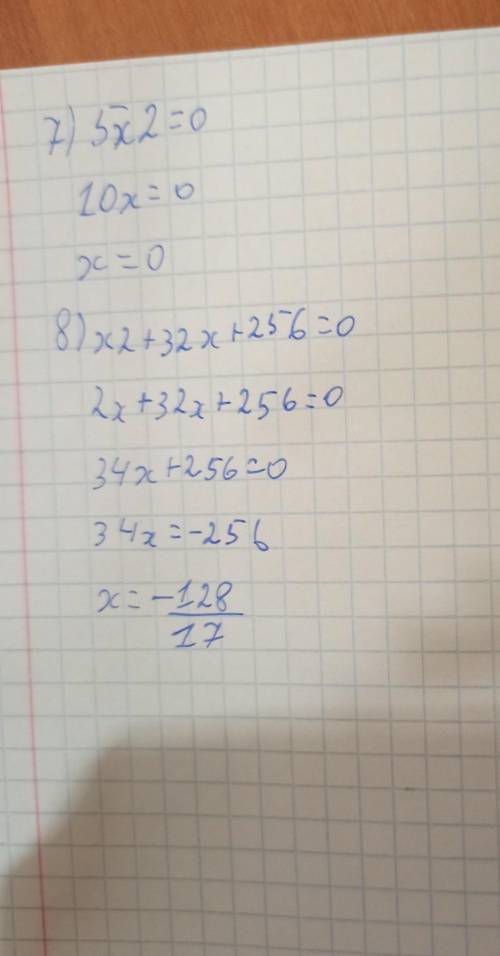 7) 5x2=0
10x=0
x=0
8) x2+32x+256=0
2x+32x+256=0
34x+256=0
34x=-256
x=-128
17